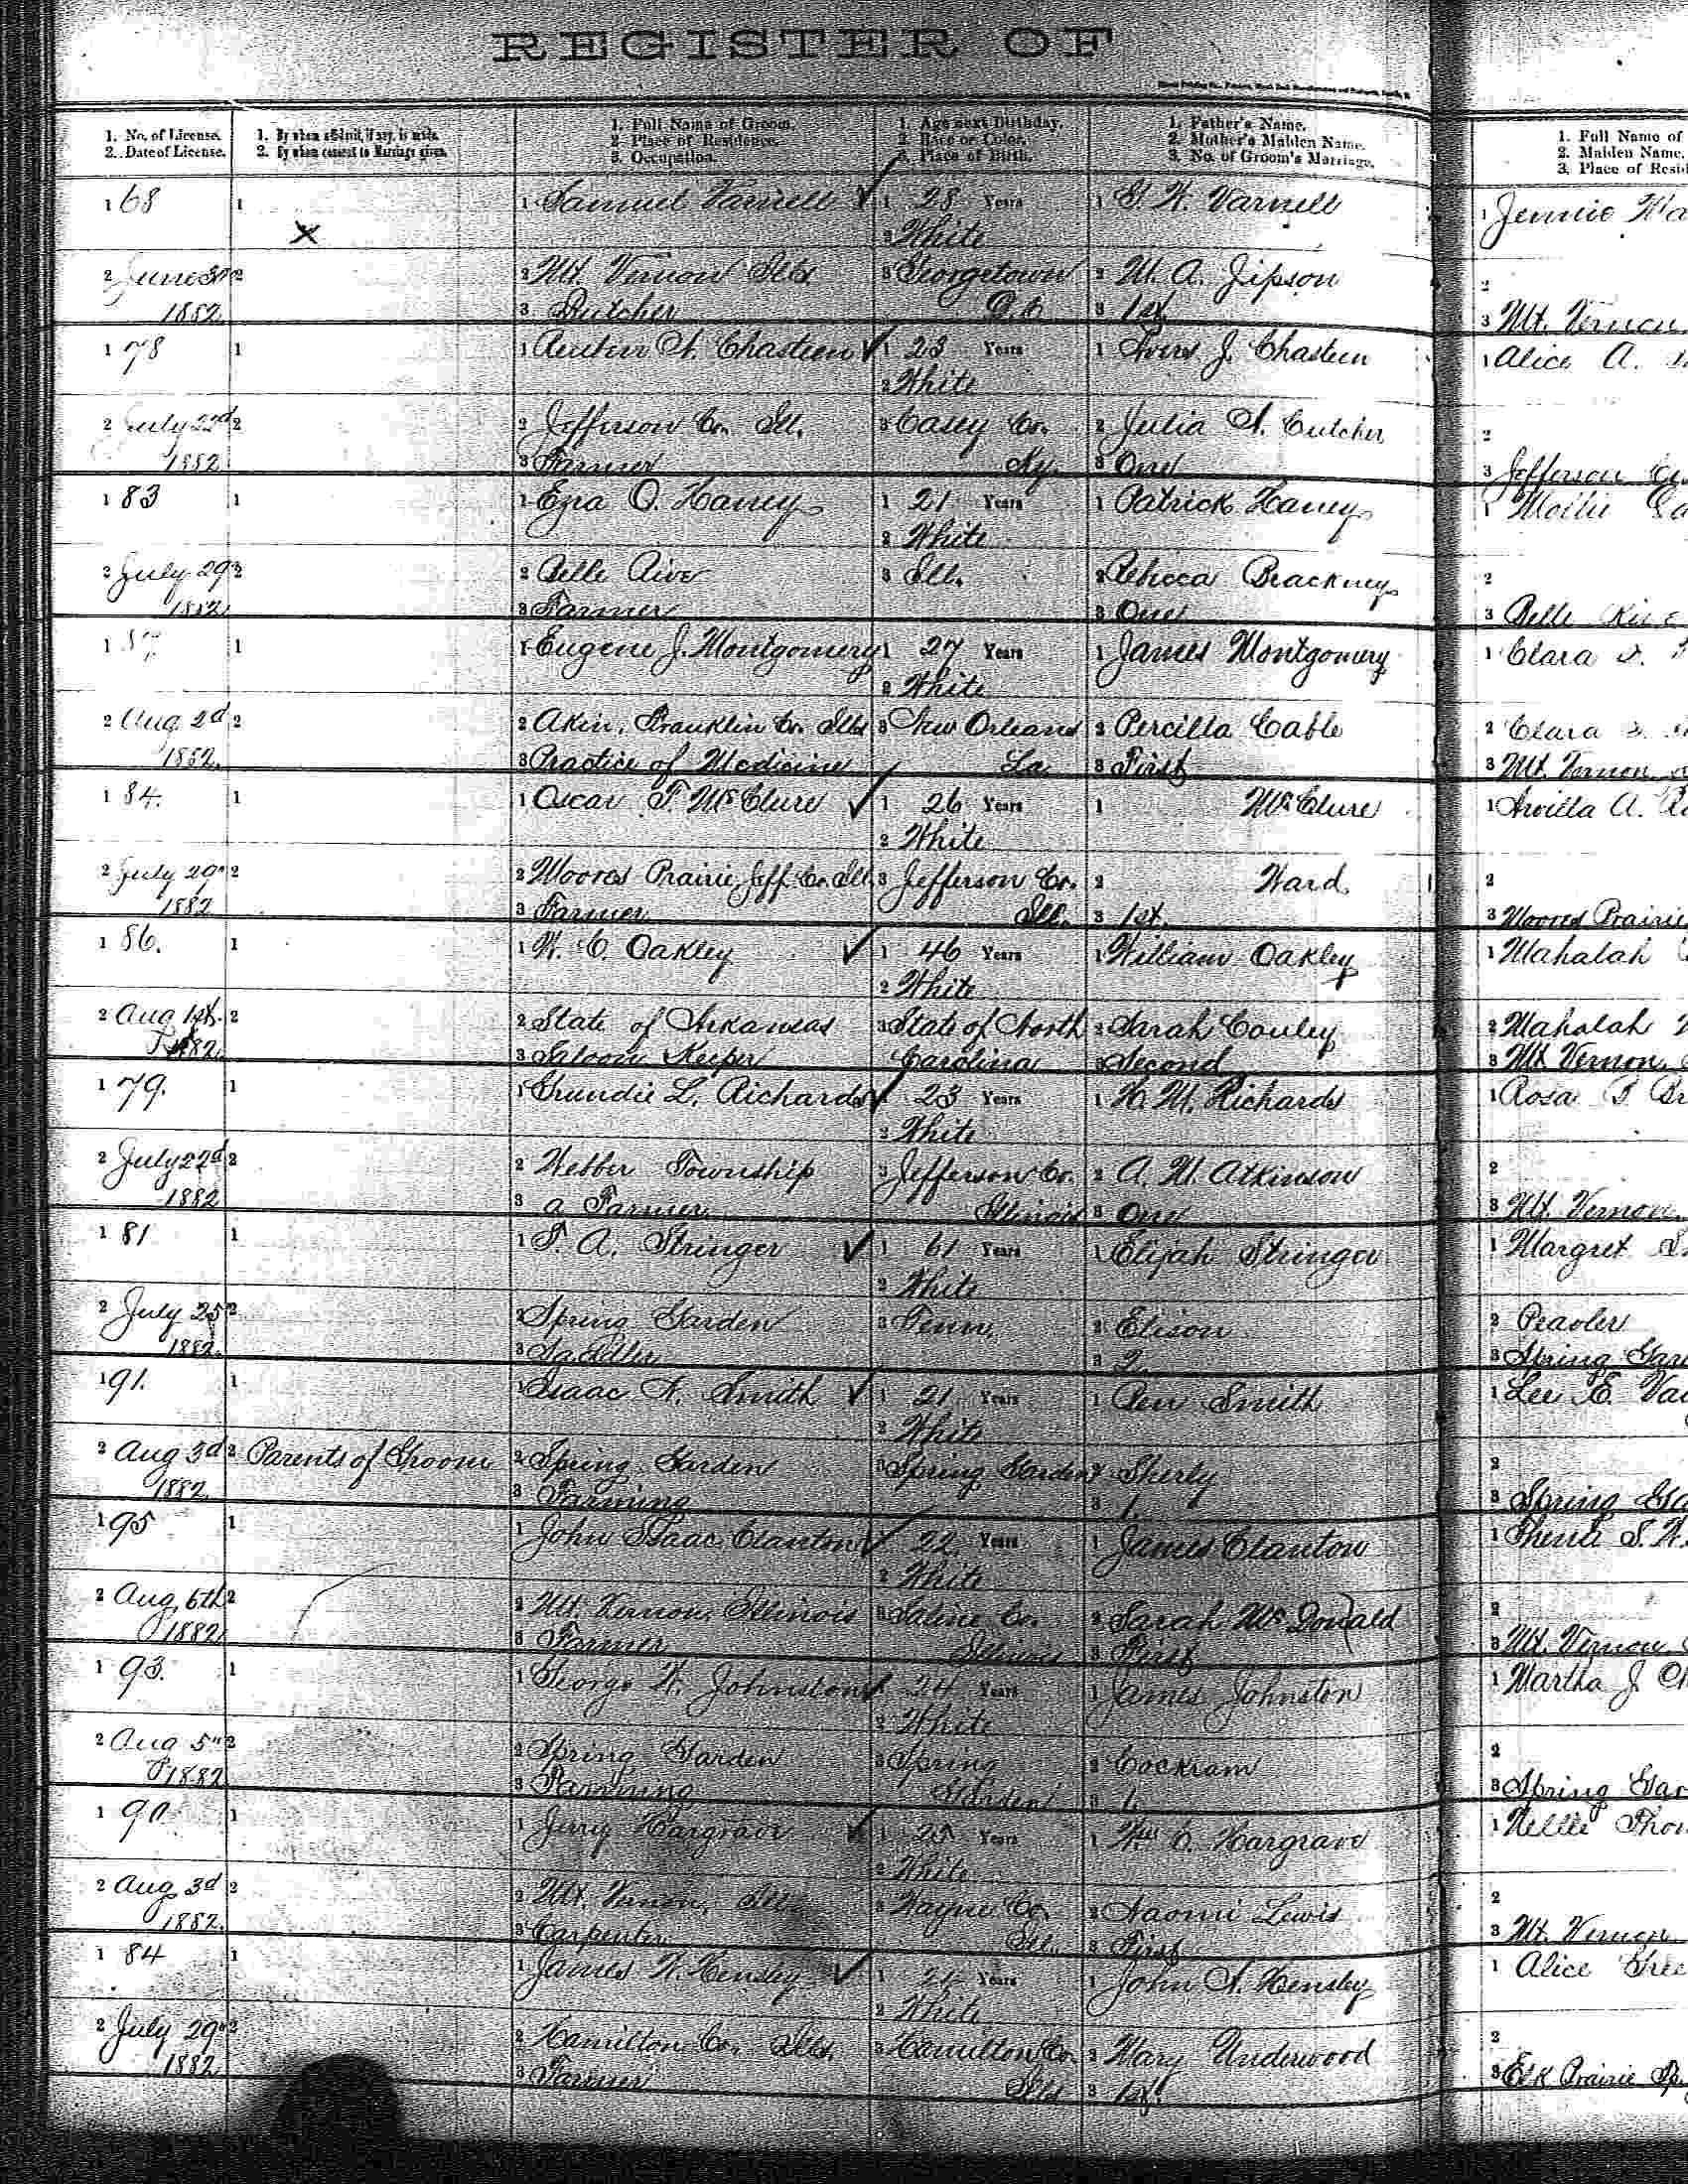 REGISTER OF
1. No. of License. 1. By whom affidavit, if any, is made. 1. Full Name of Groom. 1. Age next Birthday. 1. Father's Name. 1. Full Name of
2. Date of License. 2. By whom consent to Marriage given. 2. Place of Residence. 2. Race or Color. 2. Mother's Maiden Name. 2. Maiden Name.
3. Occupation. 3. Place of Birth. 3. No. of Groom's Marriage. 3. Place of Resid
1 68 1 1 Samuel Varnell ✓ 1 28 Years 1 S. W. Varnell 1 Jennie
X 2 White
2 June 2 2 Mt. Vernon Ills 3 Georgetown 2 M. A. Jipson 2
1882 3 Butcher 3 1st 3 Mt. Vernon
1 78 1 1 ✓ 1 23 Years 1 J. Chasteen 1 Alice A.
2 White
2 July 22d 2 2 Jefferson Co. Ill. 3 Casey Co. 2 Julia A. Cutcher 2
1882 3 Farmer Ky. 3 One 3 Jefferson
1 83 1 1 Ezra O. Haney 1 21 Years 1 Patrick Haney 1 Mollie
2 White
2 July 29 2 2 Belle Rive 3 Ill. 2 Rebecca Brackney 2
1882 3 Farmer 3 One 3 Belle Rive
1 1 1 Eugene J. Montgomery 1 27 Years 1 James Montgomery 1 Clara
2 White
2 Aug. 2d 2 2 Akin, Franklin Co. Ills 3 New Orleans 2 Percilla Cable 2 Clara
1882. 3 Practice of Medicine La. 3 First 3 Mt. Vernon
1 84. 1 1 Oscar F. McClure ✓ 1 26 Years 1 McClure 1 Arvilla A.
2 White
2 July 29 2 2 Moores Prairie, Jeff. Co. Ill. 3 Jefferson Co. 2 Ward. 2
1882 3 Farmer Ill. 3 1st. 3 Moores Prairie
1 86. 1 1 W. C. Oakley ✓ 1 46 Years 1 William Oakley 1 Mahalah
2 White
2 Aug 1st. 2 2 State of Arkansas 3 State of North 2 Sarah Couley 2 Mahalah
1882 3 Saloon Keeper Carolina 3 Second 3 Mt. Vernon
1 79. 1 1 Grundie L. Richards ✓ 23 Years 1 H. M. Richards 1 Rosa
2 White
2 July 22d 2 2 Webber Township 3 Jefferson Co. 2 A. M. Atkinson 2
1882 3 a Farmer Illinois 3 One 3 Mt. Vernon
1 81 1 1 F. A. Stringer ✓ 1 61 Years 1 Elijah Stringer 1 Margret
2 White
2 July 25 2 2 Spring Garden 3 Tenn. 2 Elison 2 Peavler
1882. 3 Saddler 3 2. 3 Spring Gar
1 91. 1 1 Isaac N. Smith ✓ 1 21 Years 1 Ben Smith 1 Lee E.
2 White
2 Aug 3d 2 Parents of Groom 2 Spring Garden 3 Spring Garden 2 Sherly 2
1882 3 Farming 3 1. 3 Spring Ga
1 95 1 1 John Isaac Clanton ✓ 22 Years 1 James Clanton 1
2 White
2 Aug. 6th 2 2 Mt. Vernon, Illinois 3 Saline Co. 2 Sarah McDonald 2
1882 3 Farmer Illinois 3 First 3 Mt. Vernon
1 93. 1 1 George W. Johnston ✓ 24 Years 1 James Johnston 1 Martha J
2 White
2 Aug 5th 2 2 Spring Garden 3 Spring 2 Cockram 2
1882 3 Farming Garden 3 1. 3 Spring Gar
1 90 1 1 Jerry Hargrave ✓ 1 25 Years 1 Wm C. Hargrave 1 Nellie
2 White
2 Aug 3d 2 2 Mt. Vernon, Ills 3 Wayne Co. 2 Naomi Lewis 2
1882. 3 Carpenter Ill. 3 First 3 Mt. Vernon
1 84 1 1 James W. Hensley ✓ 1 24 Years 1 John A. Hensley 1 Alice
2 White
2 July 29 2 2 Hamilton Co. Ills. 3 Hamilton Co. 2 Mary Underwood 2
1882 3 Farmer Ills 3 1st 3 Elk Prairie